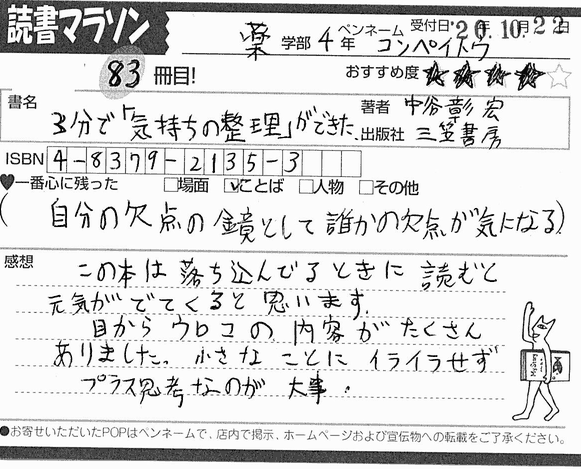 読書マラソン
薬 学部 4 年 ペンネーム コンペイトウ 受付日 '20年10月22日
83 冊目! おすすめ度 ★★★★☆
書名 3分で「気持ちの整理」ができた 著者 中谷彰宏
出版社 三笠書房
ISBN 4-8379-2135-3
♥一番心に残った □場面 ☑ことば □人物 □その他
(自分の欠点の鏡として誰かの欠点が気になる)
感想 この本は落ち込んでるときに読むと
元気がでてくると思います。
目からウロコの内容がたくさん
ありました。小さなことにイライラせず
プラス思考なのが大事。
●お寄せいただいたPOPはペンネームで、店内で掲示、ホームページおよび宣伝物への転載をご了承ください。